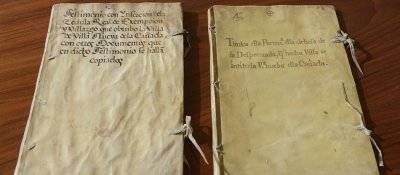 Testimonio con Inserción dela
Zedula Real de Exempcion
y Villazgo que obtubo la Villa
de Villa Nueva dela Cañada
con otros Documentos que
en dicho Testimonio se hallan
copiados
Titulos dla
de hecha Villa se
intitula Vª nueba dla Cañada.